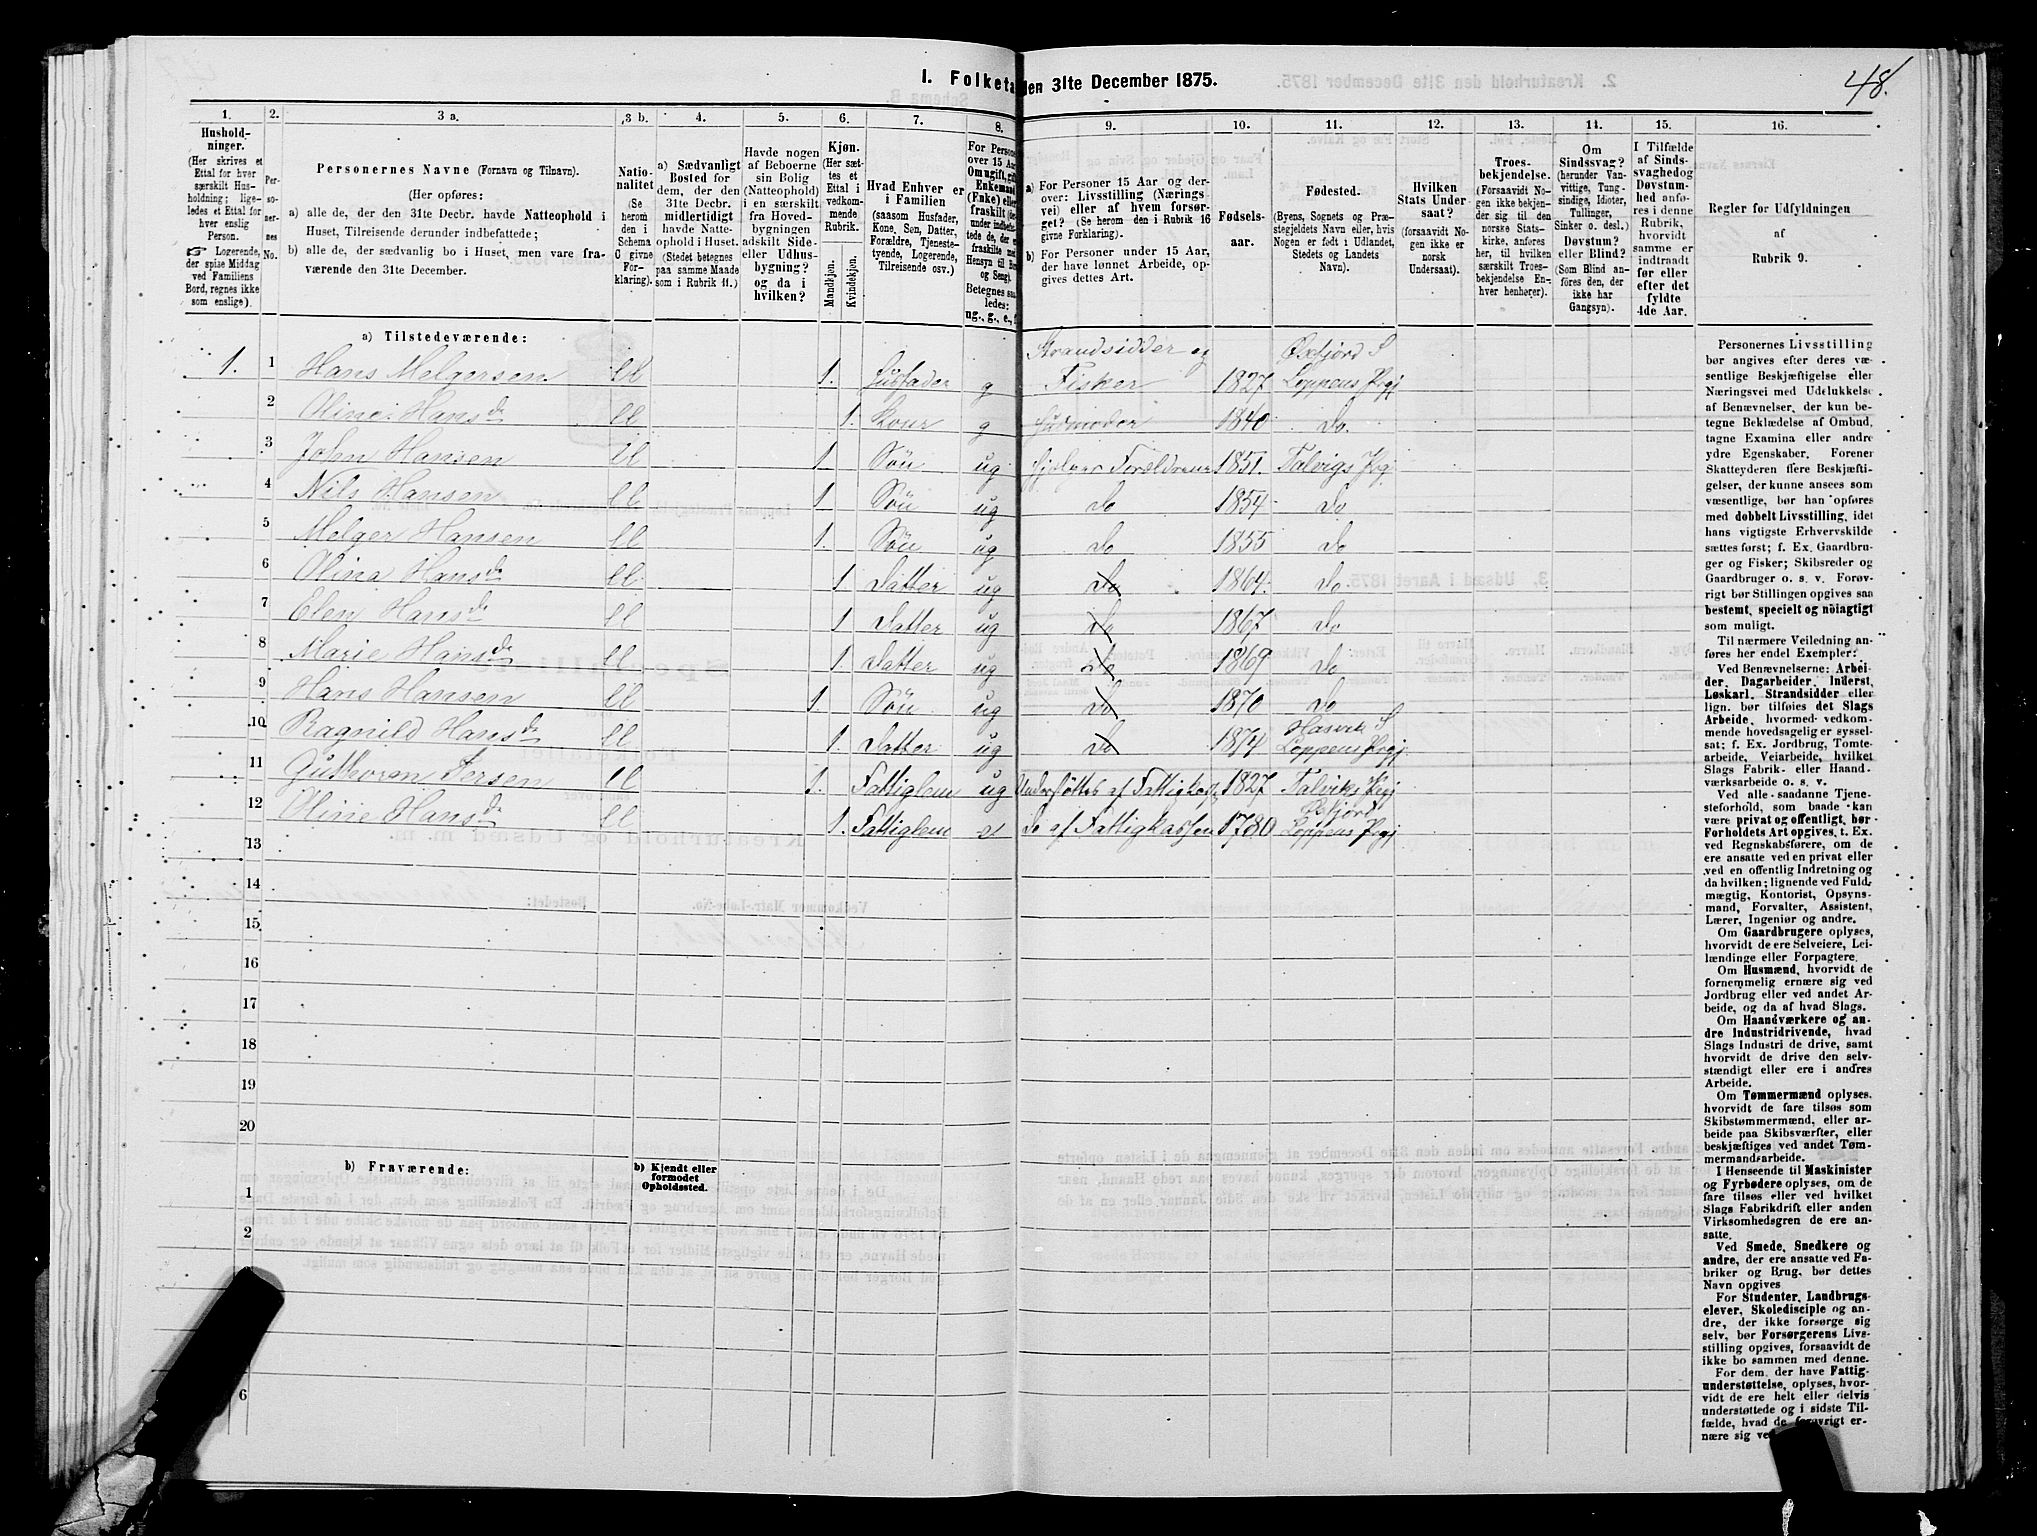 48.
I. Folketa
den 31te December 1875.
1.
2.
3 a.
3 b.
4.
5.
6.
7.
8.
9.
10.
11.
12.
13.
14.
15.
16.
Hushold-
ninger.
(Her skrives et
Ettal for hver
særskilt Hus-
holdning; lige-
ledes et Ettal for
hver enslig
Person.
☞ Logerende,
der spise Middag
ved Familiens
Bord, regnes ikke
som enslige).
Per-
so-
ner-
nes
No.
Personernes Navne (Fornavn og Tilnavn).
(Her opføres:
a) alle de, der den 31te Decbr. havde Natteophold i
Huset, Tilreisende derunder indbefattede;
b) alle de, der sædvanlig bo i Huset, men vare fra-
værende den 31te December.)
Natio-
nalitet
(Se
herom
den i
Schema
C givne
For-
klaring).
a) Sædvanligt
Bosted for
dem, der den
31te Decbr.
midlertidigt
havde Natte-
ophold i Huset.
(Stedet betegnes
paa samme Maade
som i Rubrik 11.)
Havde nogen
af Beboerne
sin Bolig
(Natteophold)
i en særskilt
fra Hoved-
bygningen
adskilt Side-
eller Udhus-
bygning?
og da i
hvilken?
Kjøn.
(Her sæt-
tes et
Ettal i
vedkom-
mende
Rubrik.
Mandkjøn.
Kvindekjøn.
Hvad Enhver er
i Familien
(saasom Husfader,
Kone, Søn, Datter,
Forældre, Tjeneste-
tyende, Logerende,
Tilreisende osv.)
For Persone
over 15 Aar
Om ugift, gift
Enkemand
(Enke) eller
fraskilt
Betegnes saa
ledes:
ug., g., e., f.
a) For Personer 15 Aar og der-
over: Livsstilling (Nærings-
vei) eller af hvem forsør-
get? (Se herom den i Rubrik 16
givne Forklaring).
b) For Personer under 15 Aar,
der have lønnet Arbeide, op-
gives dettes Art.
Fødsels-
aar.
Fødested.
(Byens, Sognets og Præ-
stegjeldets Navn eller, hvis
Nogen er født i Udlandet,
Stedets og Landets
Navn).
Hvilken
Stats Under-
saat?
(forsaavidt No-
gen ikke er
norsk
Undersaat).
Troes-
bekjendelse.
(Forsaavidt No-
gen ikke bekjen-
der sig til den
norske Stats-
kirke, anføres
her, til hvilken
særskilt Troes-
bekjendelse En-
hver henhører).
Om
Sindssvag?
(herunder Van-
vittige, Tung-
sindige, Idioter,
Tullinger,
Sinker o. desl.)
Døvstum?
eller Blind?
(Som Blind an-
føres den, der
ikke har
Gangsyn).
I Tilfælde
af Sinds-
svaghed og
Døvstum-
hed anfø-
res i denne
Rubrik,
hvorvidt
samme er
indtraadt
før eller
efter det
fyldte
4de Aar.
Regler for Udfyldningen
af
Rubrik 9.
a) Tilstedeværende:
1. 1 Hans Melgersen ll 1. Husfader g Strandsidder og Fisker 1827 Øxfjord S Loppens Prgj
2 Oline Hansdr ll 1. Kone g Husmoder 1840 Do.
3 John Hansen ll 1 Søn ug hjelper Forældrene 1851. Talvigs Prgj
4 Nils Hansen ll 1 Søn ug Do 1854 Do
5 Melger Hansen ll 1. Søn ug Do 1855 Do
6 Olina Hansdr ll. 1 Datter ug Do 1864. Do
7 Elen Hansdr ll 1 Datter ug Do 1867 Do
8 Marie Hansdr ll 1. Datter ug Do 1869 Do
9 Hans Hansen ll 1 Søn ug Do 1870 Do
10 Ragnild Hansdr ll 1. Datter ug Do 1874 Hasvik S Loppens Prgj.
11 Guthorm Persen ll 1. Fattiglem ug Understøttes af Fattigkass 1827 Talviks Prgj
12 Oline Hansdr ll 1. Fattiglem e Do af Fattigkassen 1780 Øxfjord Loppens Prgj
13
14
15
16
17
18
19
20
b) Fraværende:
b) Kjendt eller
formodet
Opholdssted.
1
2
6
Personernes Livsstilling
bør angives efter deres væ-
sentlige Beskjæftigelse eller
Næringsvei med Udelukkelse
af Benævnelser, der kun be-
tegne Beklædelse af Ombud,
tagne Examina eller andre
ydre Egenskaber. Forener
Skatteyderen flere Beskjæfti-
gelser, der kunne ansees som
væsentlige, bør han opføres
med dobbelt Livsstilling, idet
hans vigtigste Erhvervskilde
sættes først; f. Ex. Gaardbru-
ger og Fisker; Skibsreder og
Gaardbruger o. s. v. Forøv-
rigt bør Stillingen opgives saa
bestemt, specielt og nøiagtigt
som muligt.
Til nærmere Veiledning an-
føres her endel Exempler:
Ved Benævnelserne: Arbei-
der, Dagarbeider, Inderst,
Løskarl, Strandsidder eller
lign. bør tilføies det Slags
Arbeide, hvormed vedkom-
mende hovedsagelig er syssel-
sat; f. Ex. Jordbrug, Tomte-
arbeide, Veiarbeide, hvilket
Slags Fabrik- eller Haand-
værksarbeide o. s. v.
Ved alle saadanne Tjene-
steforhold, som baade kan
være privat og offentligt, bør
Forholdets Art opgives, t. Ex.
ved Regnskabsførere, om de
ere ansatte ved en privat eller
ved en offentlig Indretning og
da hvilken; lignende ved Fuld-
mægtig, Kontorist, Opsyns-
mand, Forvalter, Assistent,
Lærer, Ingeniør og andre.
Om Gaardbrugere oplyses,
hvorvidt de ere Selveiere, Lei-
lændinge eller Forpagtere.
Om Husmænd, hvorvidt de
fornemmelig ernære sig ved
Jordbrug eller ved andet Ar-
beide, og da af hvad Slags.
Om Haandværkere og an-
dre industridrivende, hvad
Slags Industri de drive, samt
hvorvidt de drive den selv-
stændigt eller ere i andres
Arbeide.
Om Tømmermænd oplyses,
hvorvidt de fare tilsøs som
Skibstømmermænd, eller ar-
beide paa Skibsværfter, eller
beskjæftiges ved andet Tøm-
mermandsarbeide.
I Henseende til Maskinister
og Fyrbødere oplyses, om de
fare tilsøs eller ved hvilket
Slags Fabrikdrift eller anden
Virksomhedsgren de ere an-
satte.
Ved Smede, Snedkere og
andre, der ere ansatte ved Fa-
briker og Brug, bør dettes
Navn opgives
For Studenter, Landbrugs-
elever, Skoledisciple og an-
dre, der ikke forsørge sig
selv, bør Forsørgerens Livs-
stilling opgives, forsaavidt de
ikke bo sammen med denne.
For dem, der have Fattig-
understøttelse, oplyses, hvor-
vidt de ere helt eller delvis
understøttede og i sidste Til-
fælde, hvad de forøvrigt er-
nære sig ved